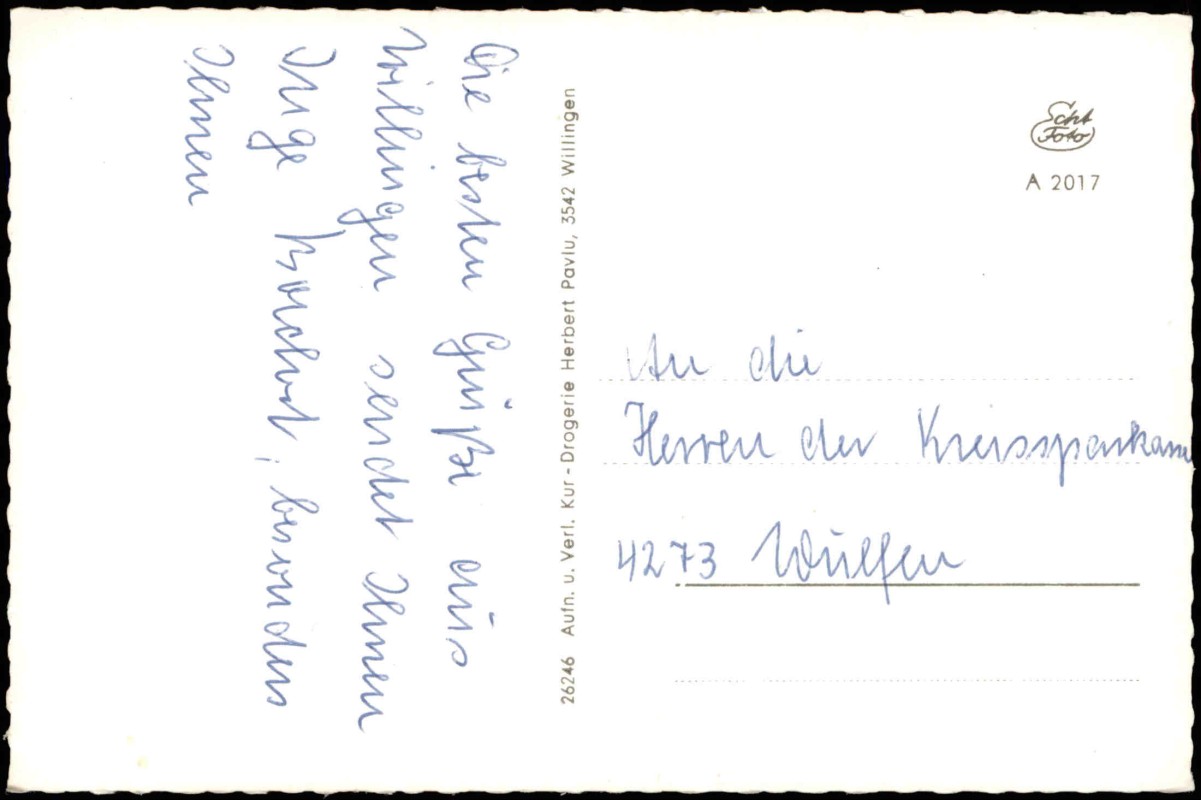 Die besten Grüße aus
Willingen sendet Ihnen
Inge Borchert, besonders
Ihnen
26246 Aufn. u. Verl. Kur-Drogerie Herbert Pavlu, 3542 Willingen
Echt
Foto
A 2017
An die
Herren der Kreissparkasse
4273 Wulfen